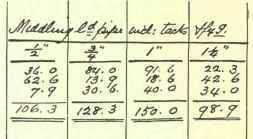 Middling ld pipes incl: tacks
1/2" 3/4" 1" 1 1/4"
36.0 84.0 91.6 22.3
62.6 13.9 18.6 42.6
7.9 30.6 40.0 34.0
106.3 128.3 150.0 98.9